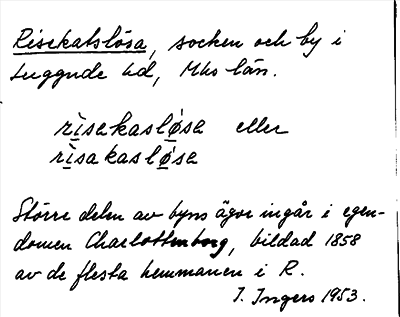 Risekatslösa, socken och by i
Luggude hd, Mhs län.
rìsakasløsa eller
rìsakasløsa
Större delen av byns ägor ingår i egen-
domen Charlottenborg, bildad 1858
av de flesta hemmanen i R.
I. Ingers 1953.